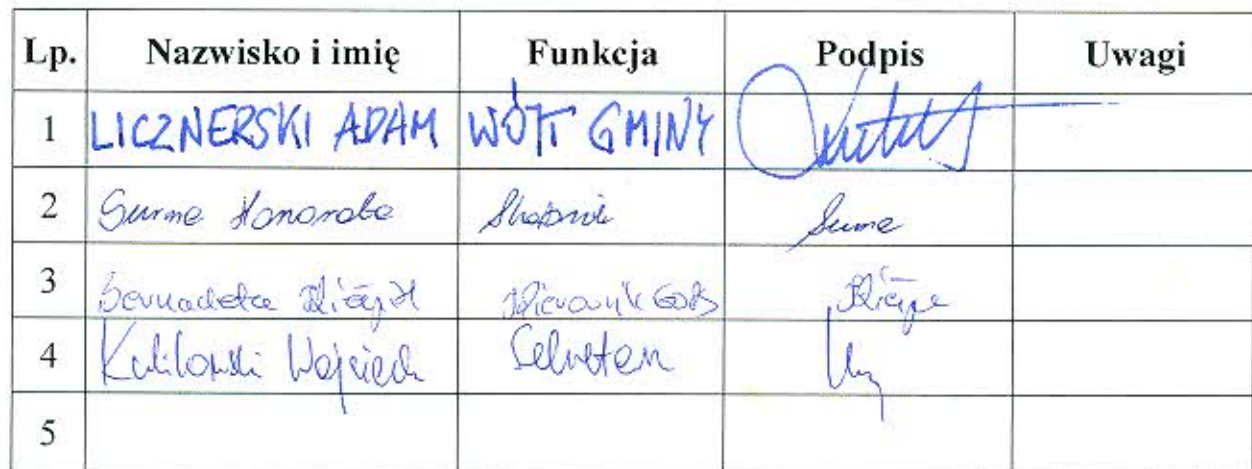 Lp. Nazwisko i imię Funkcja Podpis Uwagi
1 LICZNERSKI ADAM WÓJT GMINY
2 Surma Honorata Skarbnik Surma
3 Bernadeta Kierownik GOPS
4 Wojciech Sekretarz
5